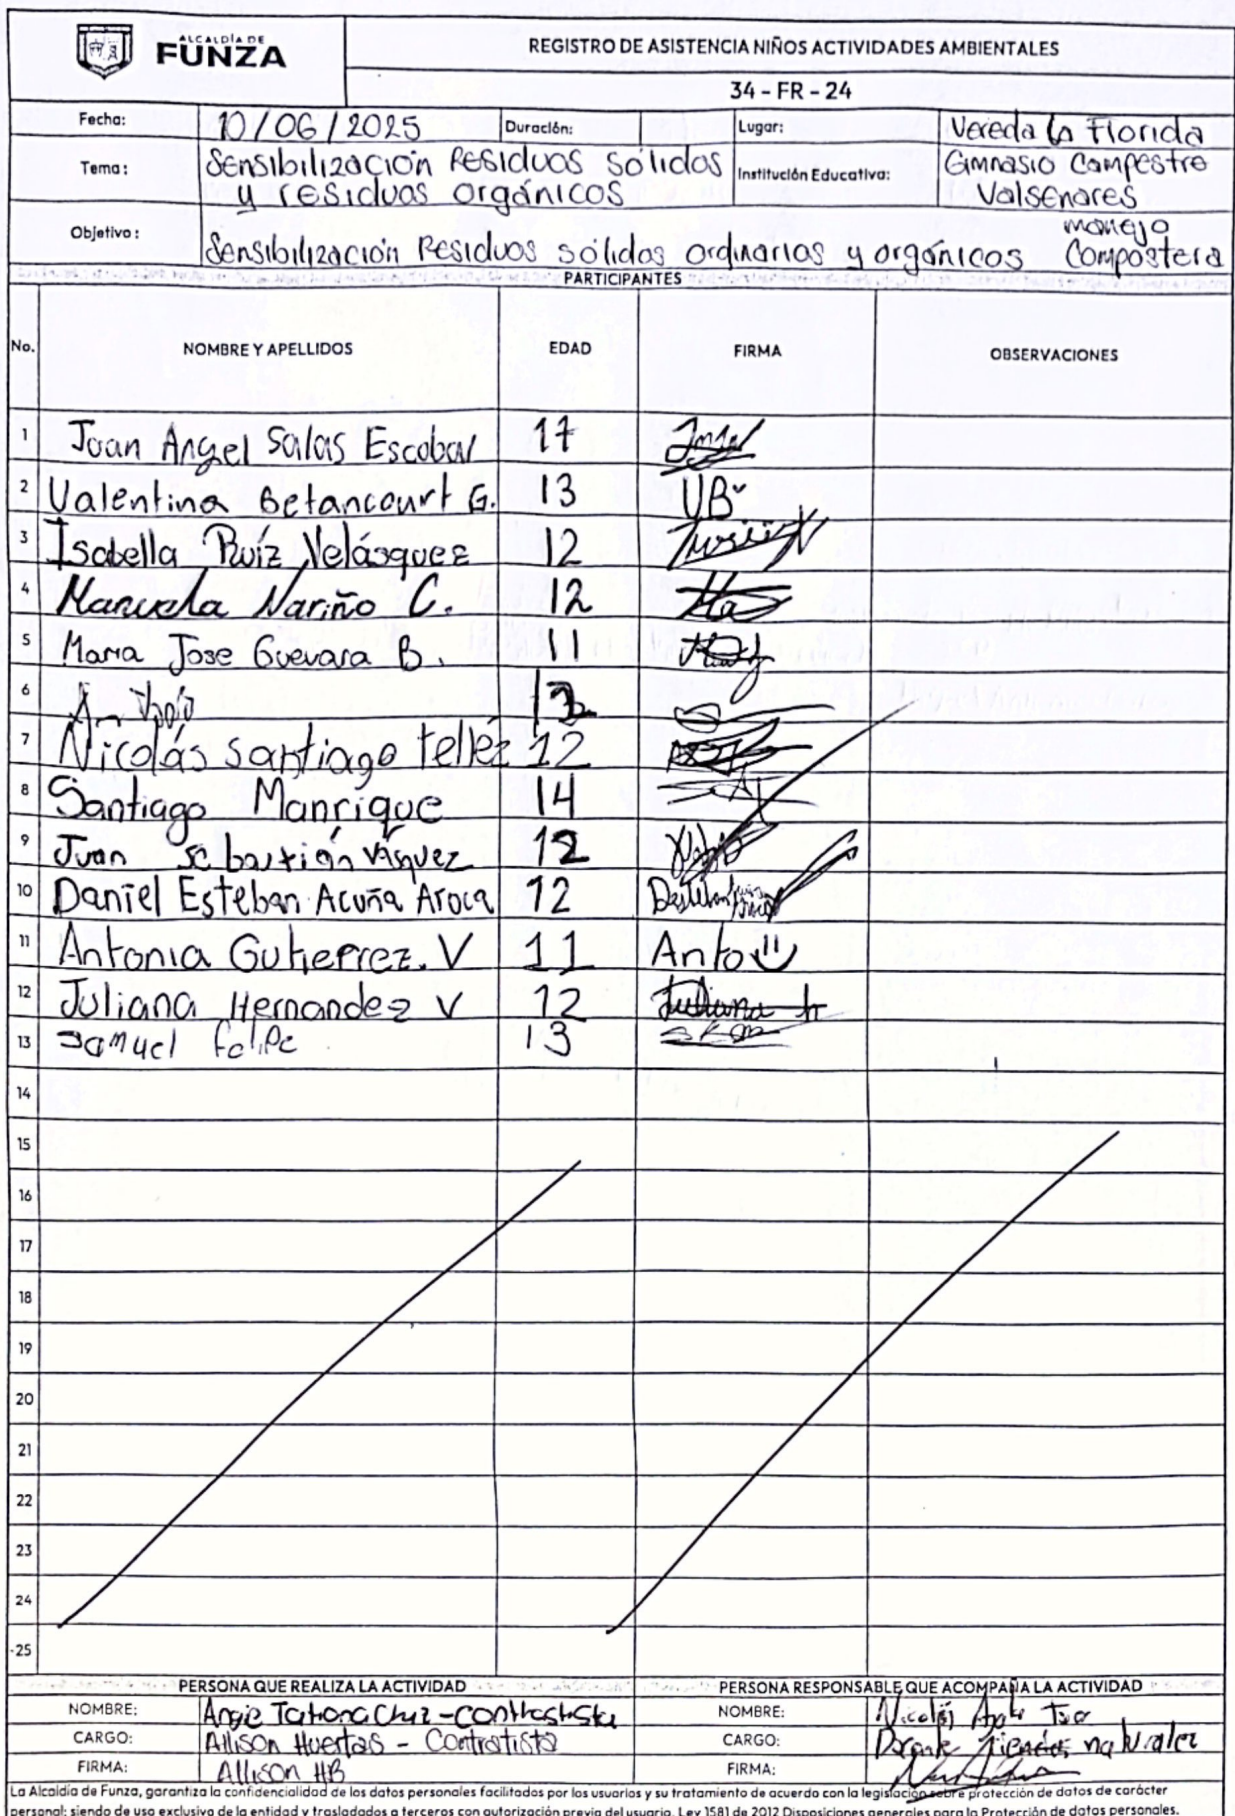 ALCALDÍA DE
FUNZA
REGISTRO DE ASISTENCIA NIÑOS ACTIVIDADES AMBIENTALES
34 - FR - 24
Fecha: 10/06/2025 Duración: Lugar: Vereda la Florida
Tema: Sensibilización Residuos sólidos y residuos orgánicos Institución Educativa: Gimnasio Campestre Valsenares
Objetivo: Sensibilización Residuos sólidos ordinarios y orgánicos manejo Compostera
PARTICIPANTES
No. NOMBRE Y APELLIDOS EDAD FIRMA OBSERVACIONES
1 Juan Angel Salas Escobar 17
2 Valentina Betancourt G. 13 VB
3 Isabella Ruíz Velásquez 12
4 Manuela Nariño C. 12
5 Maria Jose Guevara B. 11
6
7 Nicolás Santiago Tellez 12
8 Santiago Manrique 14
9 Juan Sebastián Vásquez 12
10 Daniel Esteban Acuña Aroca 12
11 Antonia Gutierrez. V 11 Anto
12 Juliana Hernandez V 12 Juliana h
13 Samuel Felipe 13
14
15
16
17
18
19
20
21
22
23
24
25
PERSONA QUE REALIZA LA ACTIVIDAD PERSONA RESPONSABLE QUE ACOMPAÑA LA ACTIVIDAD
NOMBRE: Angie Tatiana Cruz - Contratista NOMBRE: Nicolás
CARGO: Allison Huertas - Contratista CARGO: Docente Ciencias naturales
FIRMA: Allison HB FIRMA:
La Alcaldía de Funza, garantiza la confidencialidad de los datos personales facilitados por los usuarios y su tratamiento de acuerdo con la legislación sobre protección de datos de carácter
personal; siendo de uso exclusivo de la entidad y trasladados a terceros con autorización previa del usuario. Ley 1581 de 2012 Disposiciones generales para la Protección de datos personales.